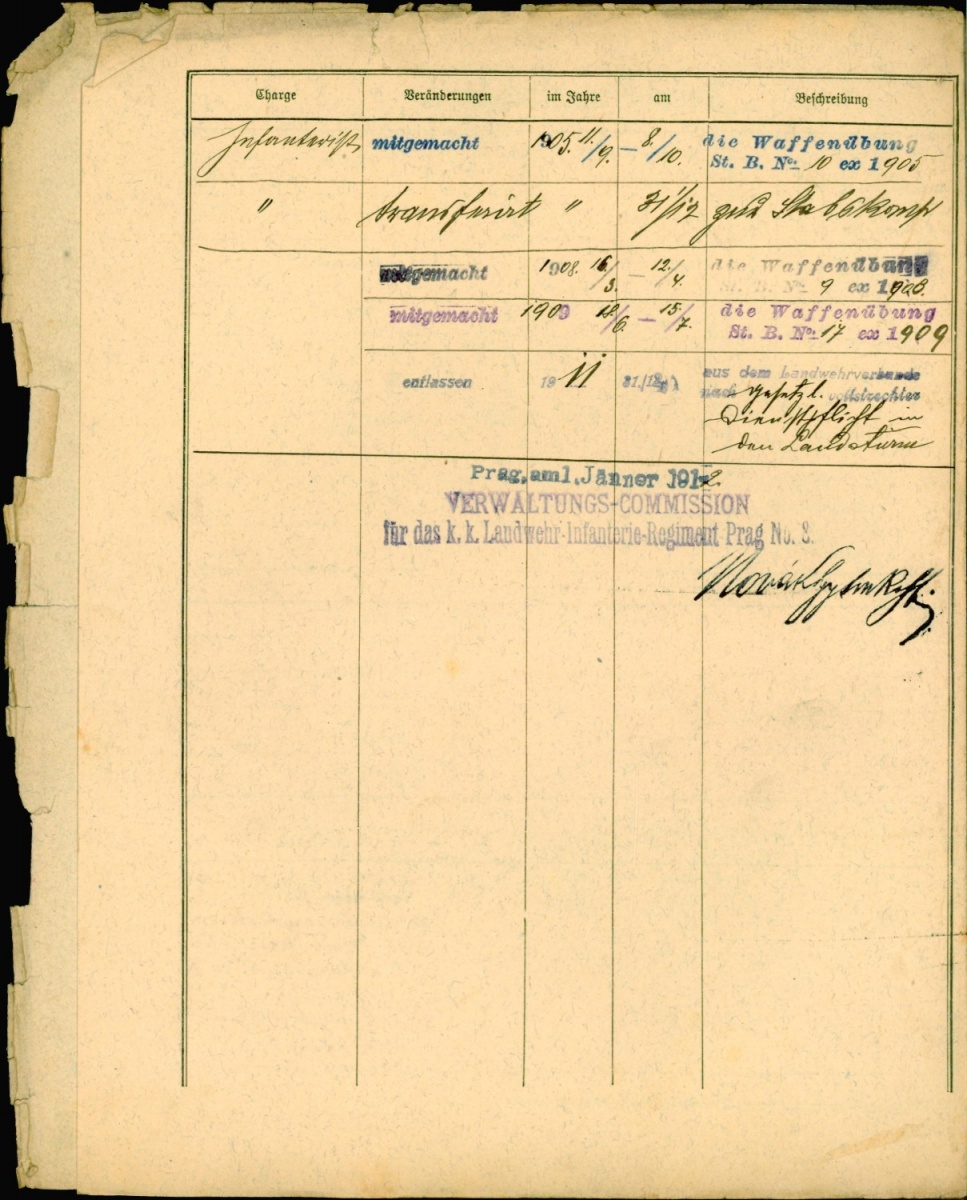 Charge Veränderungen im Jahre am Beschreibung
Infanterist mitgemacht 1905. 11./9. – 8./10. die Waffenübung
St. B. No. 10 ex 1905
" transferirt " 31/12 zur Stabskomp
mitgemacht 1908. 16./3. – 12./4. die Waffenübung
St. B. No. 9 ex 1908.
mitgemacht 1909 18./6. – 15./7. die Waffenübung
St. B. No. 17 ex 1909
entlassen 1911 31./12. aus dem Landwehrverbande
nach gesetzl. vollstreckter
Dienstpflicht in
den Landsturm
Prag, am 1. Jänner 1912.
VERWALTUNGS-COMMISSION
für das k. k. Landwehr-Infanterie-Regiment Prag No. 8.